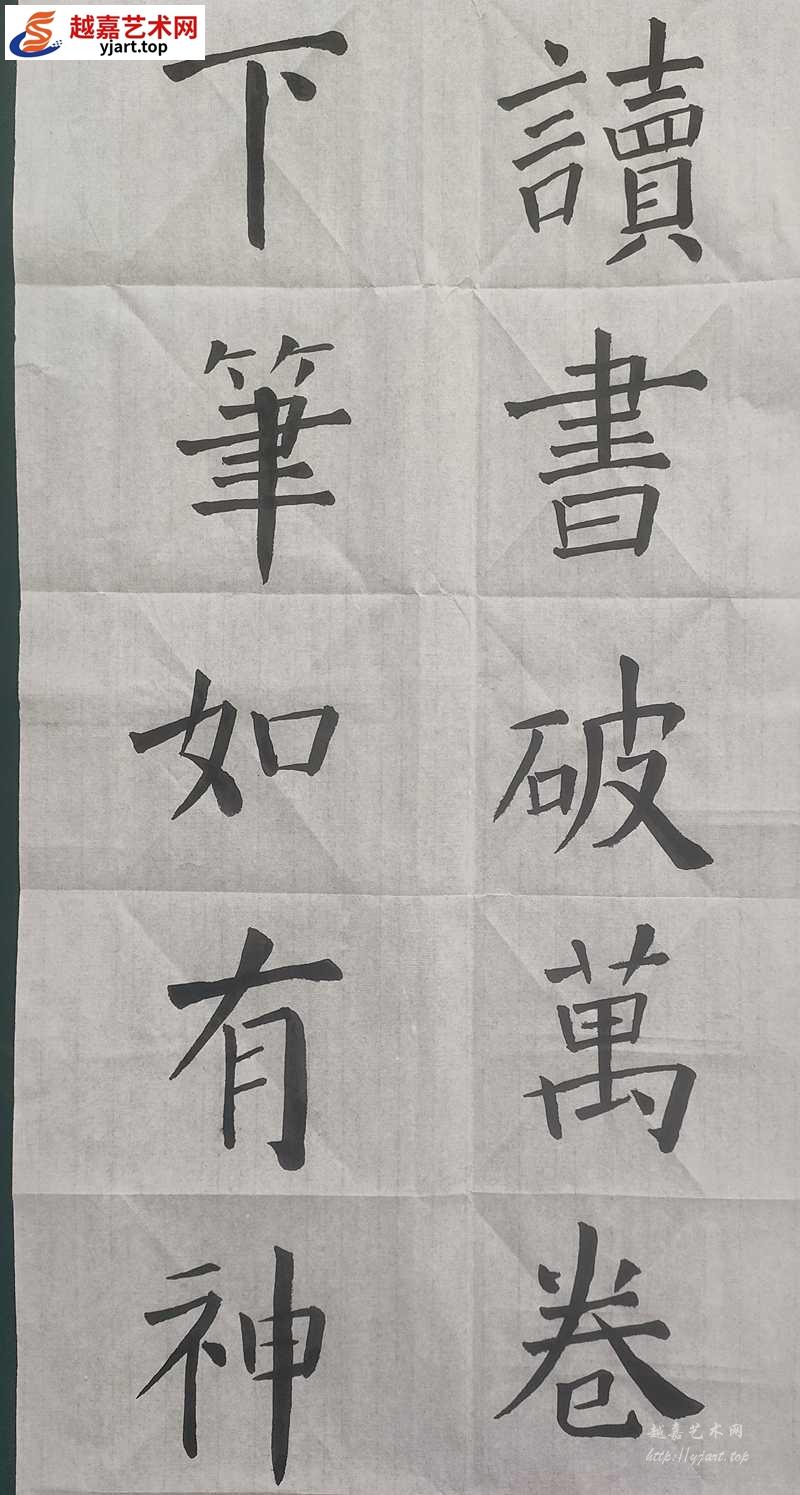 越嘉艺术网
yjart.top
讀書破萬卷
下筆如有神
越嘉艺术网
http://yjart.top